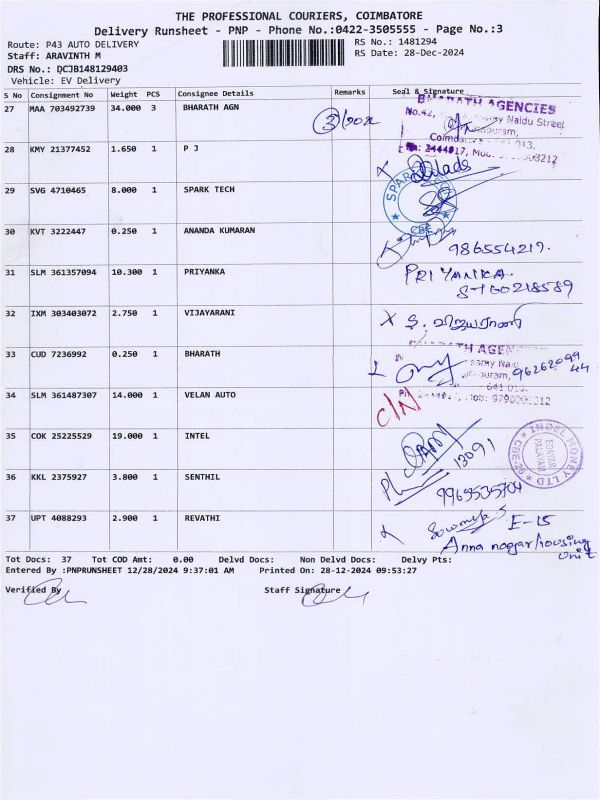 THE PROFESSIONAL COURIERS, COIMBATORE
Delivery Runsheet - PNP - Phone No.:0422-3505555 - Page No.:3
Route: P43 AUTO DELIVERY RS No.: 1481294
Staff: ARAVINTH M RS Date: 28-Dec-2024
DRS No.: DCJB148129403
Vehicle: EV Delivery
S No Consignment No Weight PCS Consignee Details Remarks Seal & Signature
27 MAA 703492739 34.000 3 BHARATH AGN 3 BHARATH AGENCIES
No.42, Naidu Street
28 KMY 21377452 1.650 1 P J
29 SVG 4710465 8.000 1 SPARK TECH
CBE
30 KVT 3222447 0.250 1 ANANDA KUMARAN
31 SLM 361357094 10.300 1 PRIYANKA PRIYANKA
32 IXM 303403072 2.750 1 VIJAYARANI X S. விஜயராணி
33 CUD 7236992 0.250 1 BHARATH
34 SLM 361487307 14.000 1 VELAN AUTO C/N
35 COK 25225529 19.000 1 INTEL 13091
INDEL MONEY LTD
36 KKL 2375927 3.800 1 SENTHIL
37 UPT 4088293 2.900 1 REVATHI E-15
Anna nagar housing unit
Tot Docs: 37 Tot COD Amt: 0.00 Delvd Docs: Non Delvd Docs: Delvy Pts:
Entered By :PNPRUNSHEET 12/28/2024 9:37:01 AM Printed On: 28-12-2024 09:53:27
Verified By Staff Signature